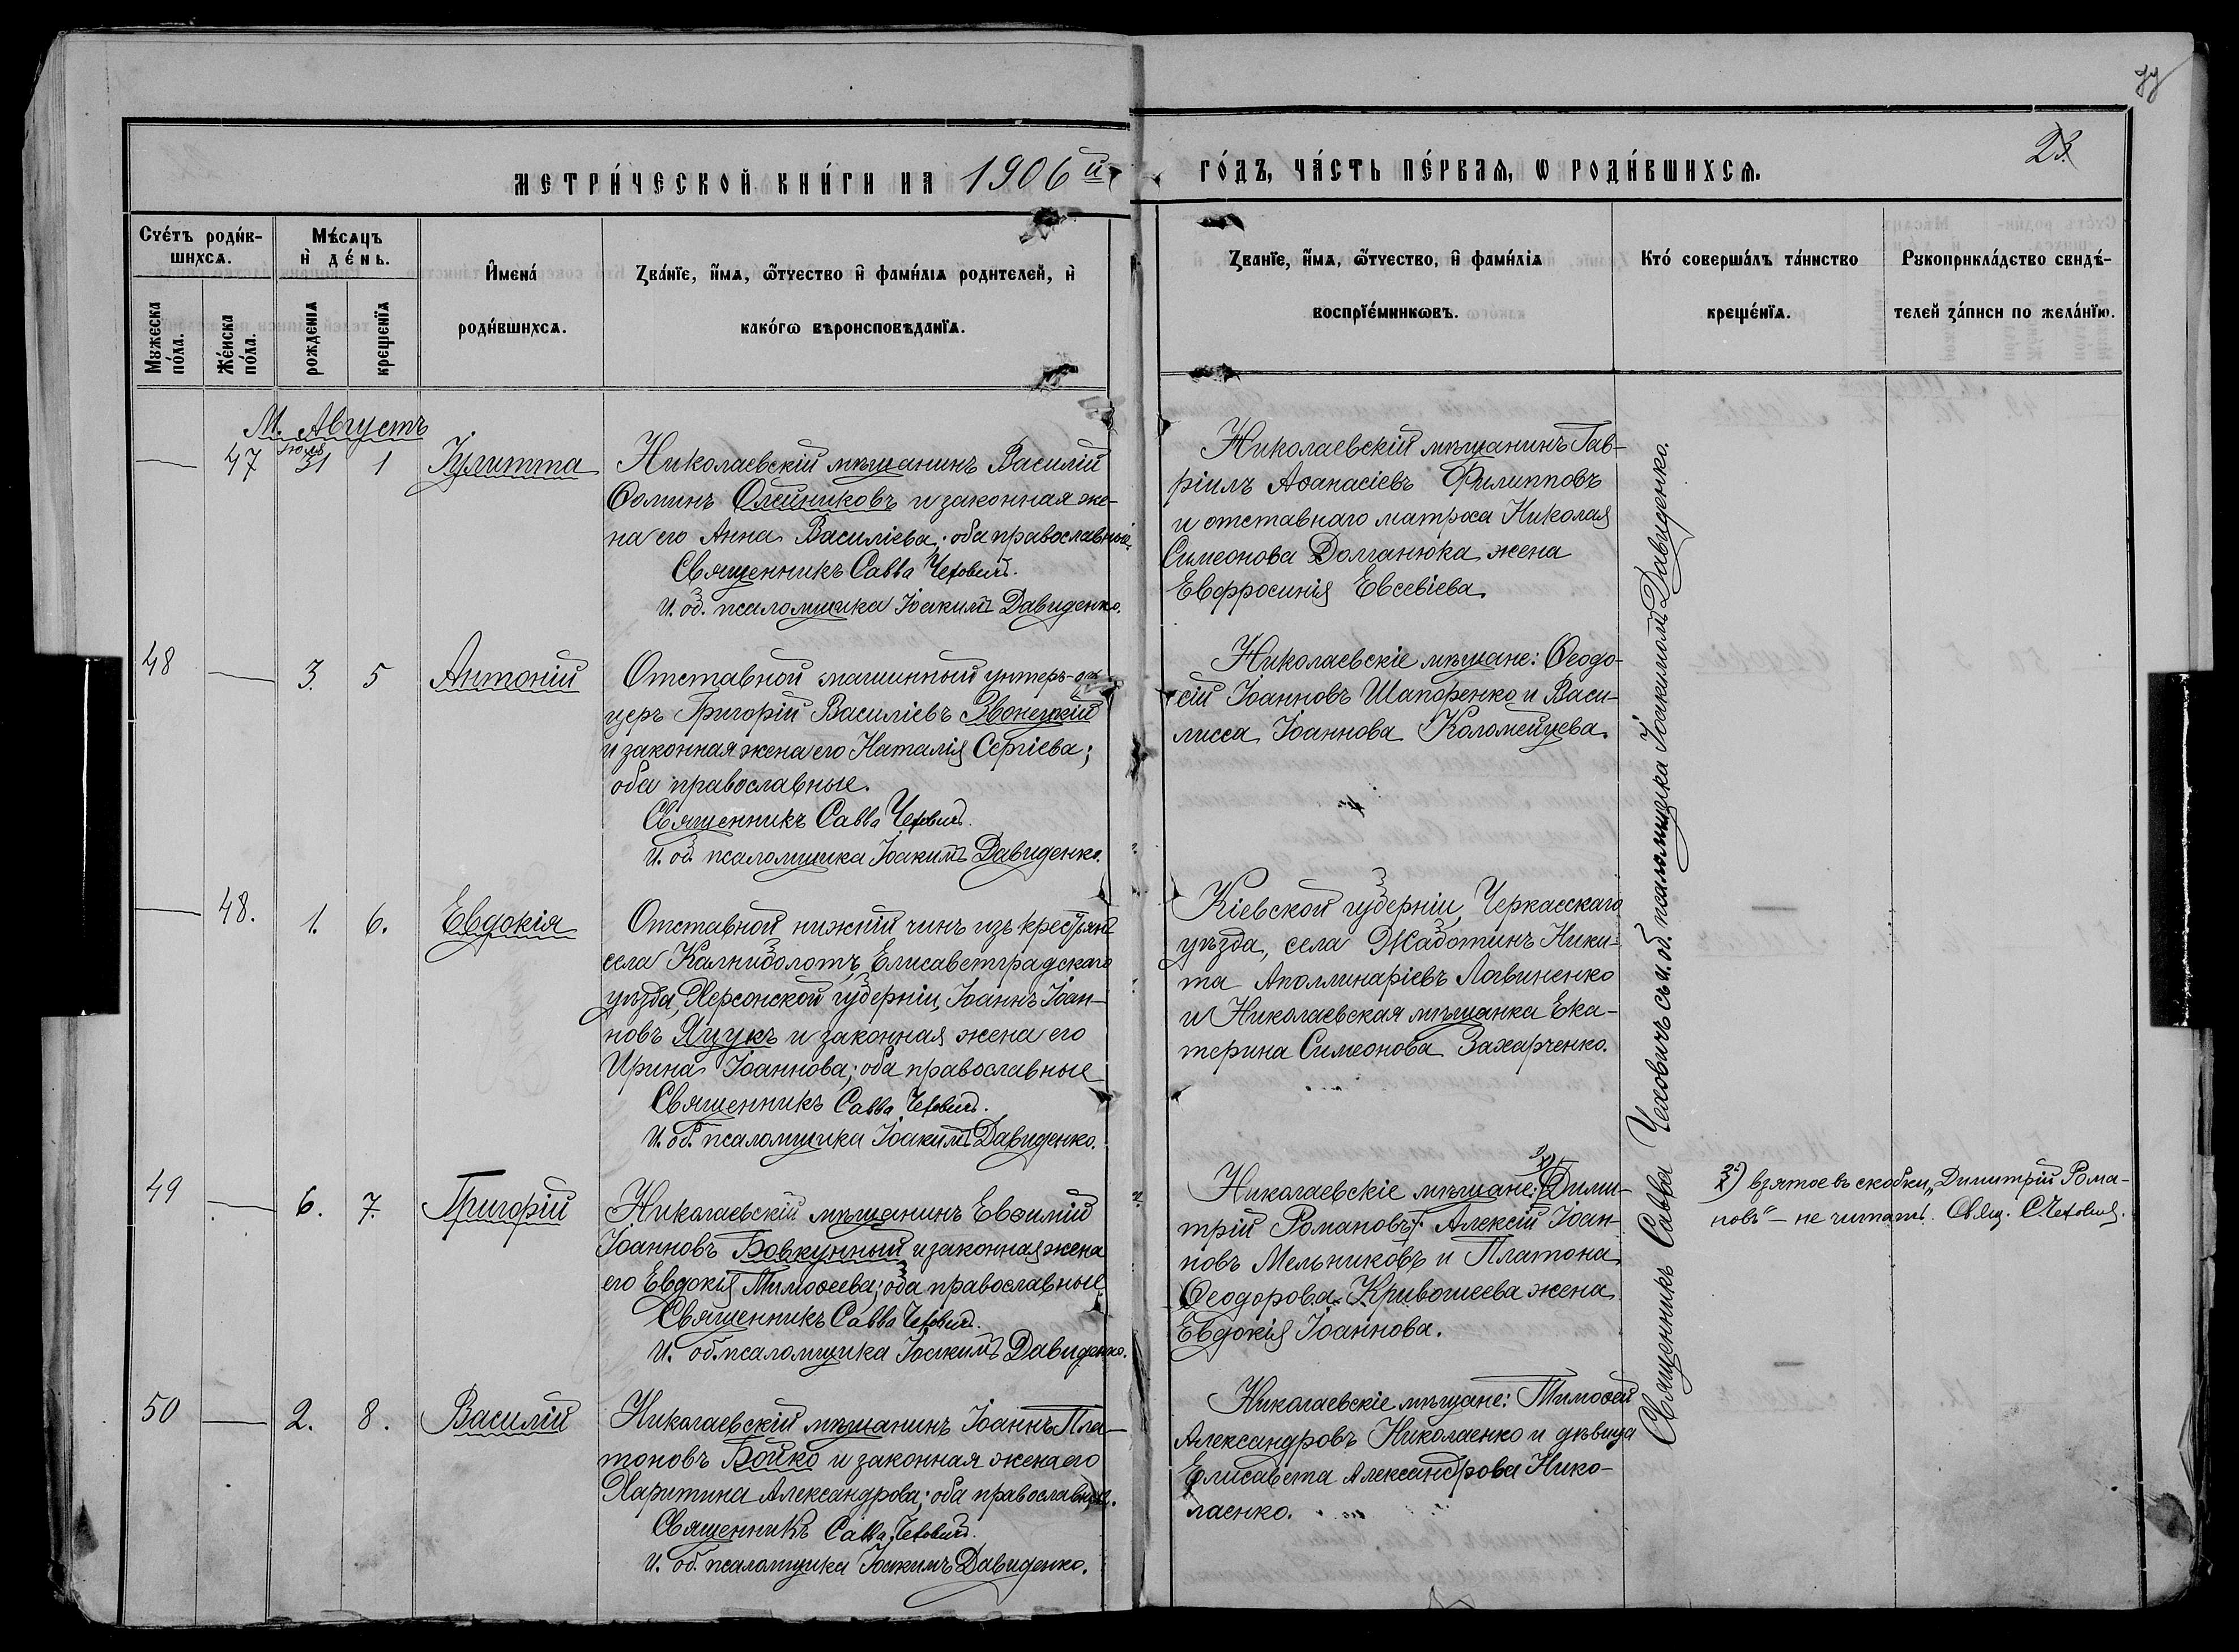 уу
23.
МЕТРИ́ЧЕСКОЙ КНИ́ГИ НА 1906й
ГО́ДЪ, ЧА́СТЬ ПЕ́РВАѦ, Ѡ РОДИ́ВШИХСѦ.
Сче́тъ роди́в-
шихсѧ.
Мѣ́сѧцъ
и҆ де́нь.
Мꙋжеска
по́ла.
Же́нска
по́ла.
рожденїѧ
крещенїѧ
И҆мена́
роди́вшихсѧ.
Зва́нїе, и҆́мѧ, ѻ҆́тчество и҆ фами́лїѧ родителей, и҆
како́гѡ вѣроисповѣданїѧ.
Званїе, и҆́мѧ, ѻ҆́тчество, и҆ фами́лїѧ
воспрїе́мникѡвъ.
Кто́ соверша́лъ та́инство
креще́нїѧ.
Рꙋкоприкла́дство свидѣ́-
телей за́писи по жела́нїю.
М. Августъ
Іюля
— 47 31 1 Іулитта
Николаевскій мѣщанинъ Василій
Ѳоминъ Олейниковъ и законная же-
на его Анна Василіева; оба православные.
Священникъ Савва Чехович.
И. об. псаломщика Іоакимъ Давиденко.
Николаевскій мѣщанинъ Гав-
ріилъ Аѳанасіевъ Филипповъ
и отставнаго матроса Николая
Симеонова Долганюка жена
Евфросинія Евсевіева.
48 — 3. 5 Антоній
Отставной машинный унтеръ-офи
церъ Григорій Василіевъ Звонецкій
и законная жена его Наталія Сергіева;
оба православные.
Священникъ Савва Чехович.
И. об. псаломщика Іоакимъ Давиденко.
Николаевскіе мѣщане: Ѳеодо-
сій Іоанновъ Шапоренко и Васи-
лисса Іоаннова Коломейцева.
— 48. 1. 6. Евдокія
Отставной нижній чинъ изъ крестьянъ
села Калниболотъ, Елисаветградскаго
уѣзда, Херсонской губерніи, Іоаннъ Іоан-
новъ Яцукъ и законная жена его
Ирина Іоаннова; оба православные
Священникъ Савва Чехович.
И. об. псаломщика Іоакимъ Давиденко.
Кіевской губерніи, Черкасскаго
уѣзда, села Жаботинъ Ники-
та Аполлинаріевъ Логвиненко
и Николаевская мѣщанка Ека-
терина Симеонова Захарченко.
—
49 — 6. 7. Григорій
Николаевскій мѣщанинъ Евѳимій
Іоанновъ Бовкунный и законная жена
его Евдокія Тимоѳеева; оба православные
Священникъ Савва Чехович.
И. об. псаломщика Іоакимъ Давиденко.
Николаевскіе мѣщане: (Дими-
трій Романовъ) Алексій Іоан-
новъ Мельниковъ и Платона
Ѳеодорова Кривошеева жена
Евдокія Іоаннова.
2) взятое въ скобки „Димитрій Рома-
новъ" — не читать. Свящ. С. Чехович.
50 — 2. 8. Василій
Николаевскій мѣщанинъ Іоаннъ Пла-
тоновъ Бойко и законная жена его
Харитина Александрова; оба православные.
Священникъ Савва Чехович.
И. об. псаломщика Іоакимъ Давиденко.
Николаевскіе мѣщане: Тимоѳей
Александровъ Николаенко и дѣвица
Елисавета Александрова Нико-
лаенко.
—
Священникъ Савва Чеховичъ съ и. об. псаломщика Іоакимомъ Давиденко.